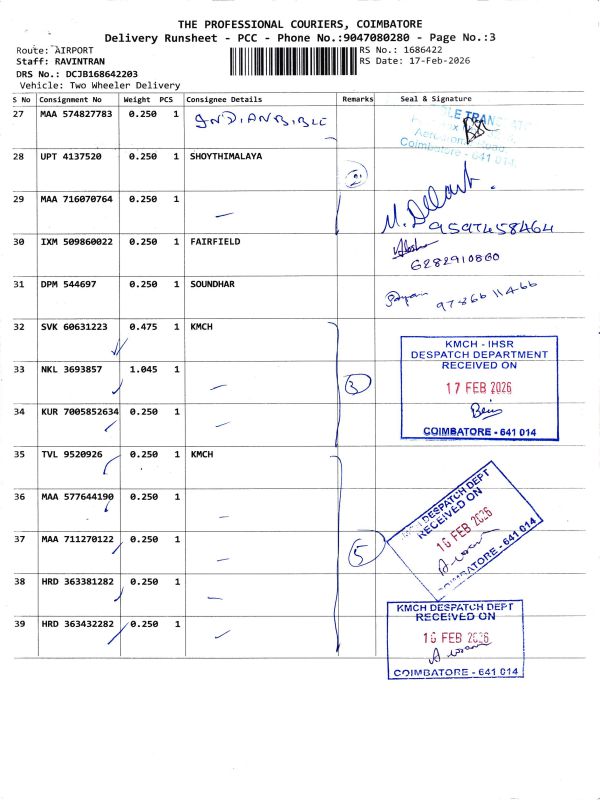 THE PROFESSIONAL COURIERS, COIMBATORE
Delivery Runsheet - PCC - Phone No.:9047080280 - Page No.:3
Route: AIRPORT RS No.: 1686422
Staff: RAVINTRAN RS Date: 17-Feb-2026
DRS No.: DCJB168642203
Vehicle: Two Wheeler Delivery
S No Consignment No Weight PCS Consignee Details Remarks Seal & Signature
27 MAA 574827783 0.250 1 INDIANBIBLE
Coimbatore - 641 014
28 UPT 4137520 0.250 1 SHOYTHIMALAYA 2
29 MAA 716070764 0.250 1 —
9597458464
30 IXM 509860022 0.250 1 FAIRFIELD
6282910860
31 DPM 544697 0.250 1 SOUNDHAR
9786611466
32 SVK 60631223 0.475 1 KMCH
33 NKL 3693857 1.045 1 — 3
34 KUR 7005852634 0.250 1 —
KMCH - IHSR
DESPATCH DEPARTMENT
RECEIVED ON
17 FEB 2026
COIMBATORE - 641 014
35 TVL 9520926 0.250 1 KMCH
36 MAA 577644190 0.250 1 —
37 MAA 711270122 0.250 1 — 5
38 HRD 363381282 0.250 1 —
39 HRD 363432282 0.250 1 —
KMCH DESPATCH DEPT
RECEIVED ON
16 FEB 2026
COIMBATORE - 641 014
KMCH DESPATCH DEPT
RECEIVED ON
16 FEB 2026
COIMBATORE - 641 014